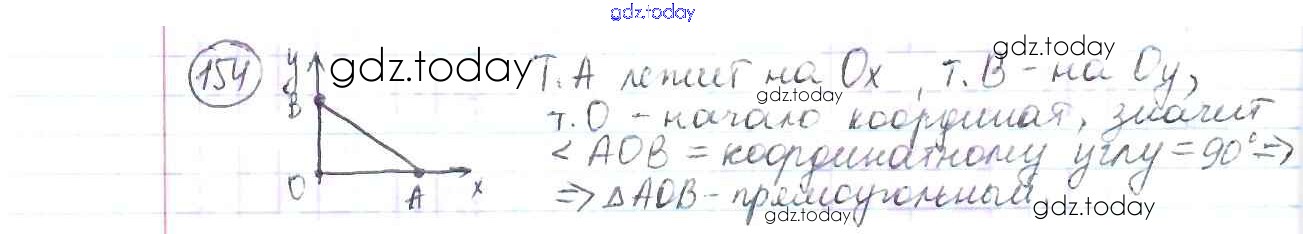 gdz.today
154 y gdz.today Т. А лежит на Ox, т. В - на Oy, gdz.today
B т. О - начало координат, значит gdz.today
< AOB = координатному углу = 90° =>
O A x => △AOB - прямоугольный gdz.today gdz.today